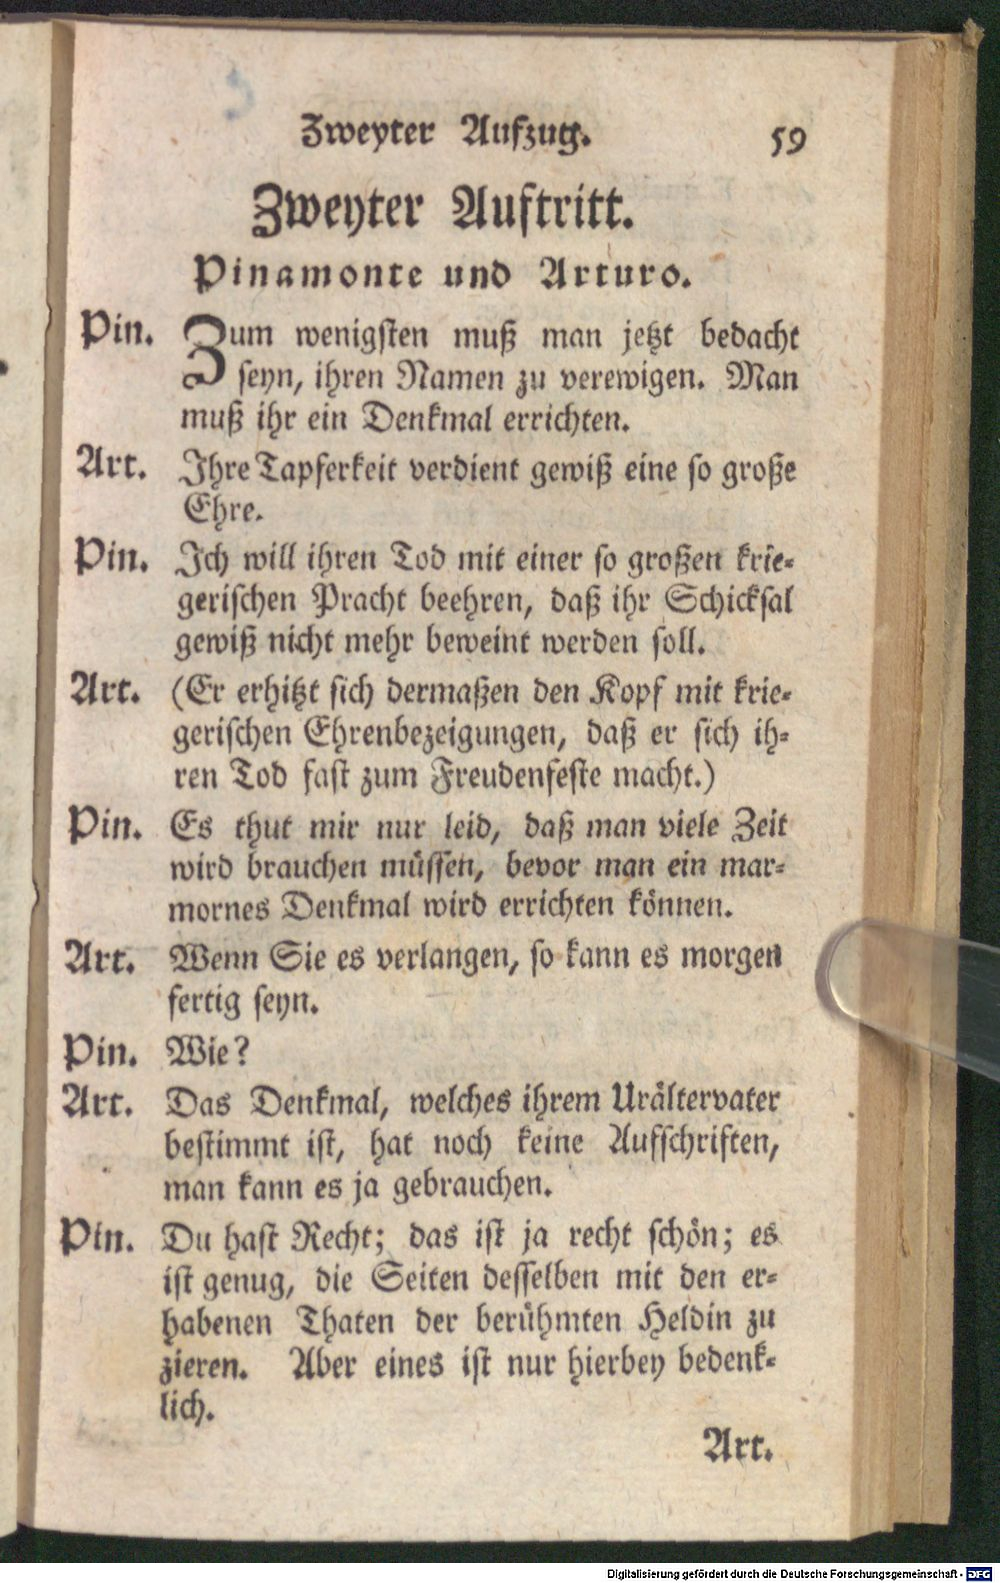 Zweyter Aufzug. 59
Zweyter Auftritt.
Pinamonte und Arturo.
Pin. Zum wenigsten muß man jetzt bedacht
seyn, ihren Namen zu verewigen. Man
muß ihr ein Denkmal errichten.
Art. Ihre Tapferkeit verdient gewiß eine so große
Ehre.
Pin. Ich will ihren Tod mit einer so großen krie-
gerischen Pracht beehren, daß ihr Schicksal
gewiß nicht mehr beweint werden soll.
Art. (Er erhitzt sich dermaßen den Kopf mit krie-
gerischen Ehrenbezeigungen, daß er sich ih-
ren Tod fast zum Freudenfeste macht.)
Pin. Es thut mir nur leid, daß man viele Zeit
wird brauchen müssen, bevor man ein mar-
mornes Denkmal wird errichten können.
Art. Wenn Sie es verlangen, so kann es morgen
fertig seyn.
Pin. Wie?
Art. Das Denkmal, welches ihrem Urältervater
bestimmt ist, hat noch keine Aufschriften,
man kann es ja gebrauchen.
Pin. Du hast Recht; das ist ja recht schön; es
ist genug, die Seiten desselben mit den er-
habenen Thaten der berühmten Heldin zu
zieren. Aber eines ist nur hierbey bedenk-
lich.
Art.
Digitalisierung gefördert durch die Deutsche Forschungsgemeinschaft - DFG